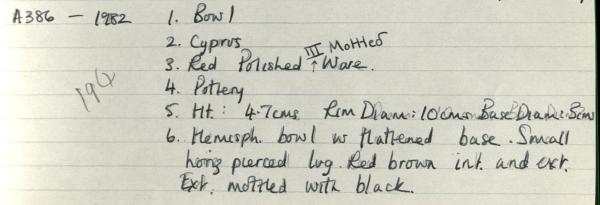 A386 – 1982 1. Bowl
2. Cyprus
3. Red Polished III Mottled Ware.
4. Pottery
5. Ht: 4.7cms Rim Diam: 10cms Base Diam: 3cm
6. Hemisph. bowl w flattened base. Small
horiz pierced lug. Red brown int. and ext.
Ext. mottled with black.